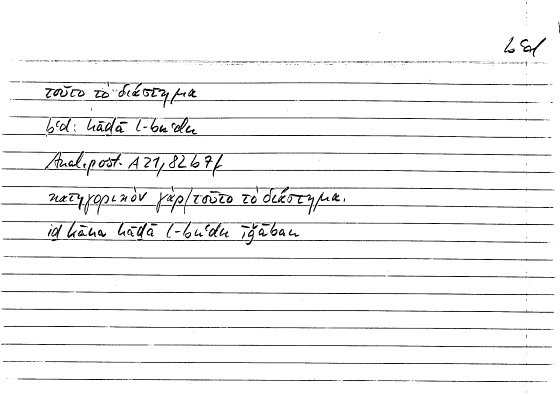 bʿd
τοῦτο τὸ διάστημα
bʿd: hāḏā l-buʿdu
Anal. post. A 21, 82 b 7f
κατηγορικὸν γάρ/τοῦτο τὸ διάστημα.
iḏ kāna hāḏā l-buʿdu īǧāban